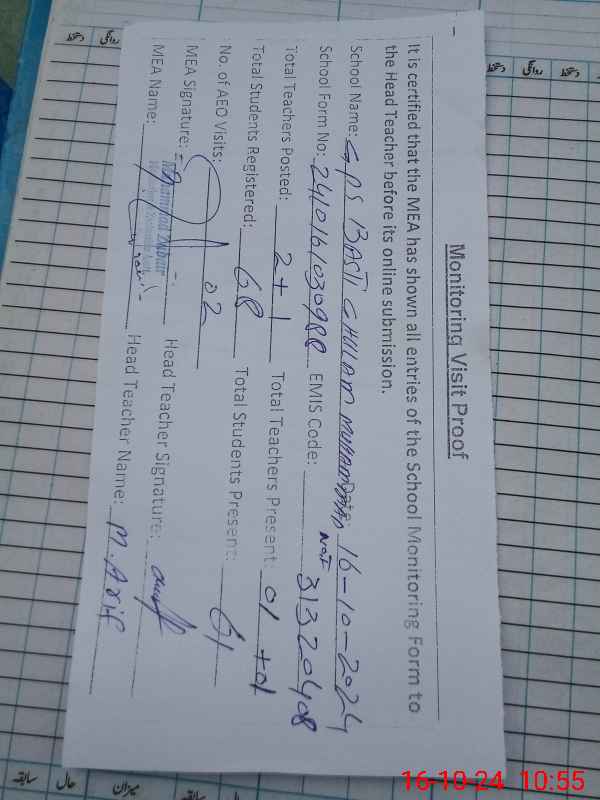 Monitoring Visit Proof
It is certified that the MEA has shown all entries of the School Monitoring Form to
the Head Teacher before its online submission.
School Name: GPS BASTI GHULAM MUHAMMAD 16-10-2024
School Form No: 2410161030988 EMIS Code: 31320408
Total Teachers Posted: 2+1 Total Teachers Present: 01+01
Total Students Registered: 68 Total Students Present: 61
No. of AEO Visits: 02
MEA Signature: Head Teacher Signature:
MEA Name: Head Teacher Name: M. Asif
دستخط روانگی
دستخط روانگی دستخط
سابقہ حال میزان سابقہ حال
16-10-24 10:55